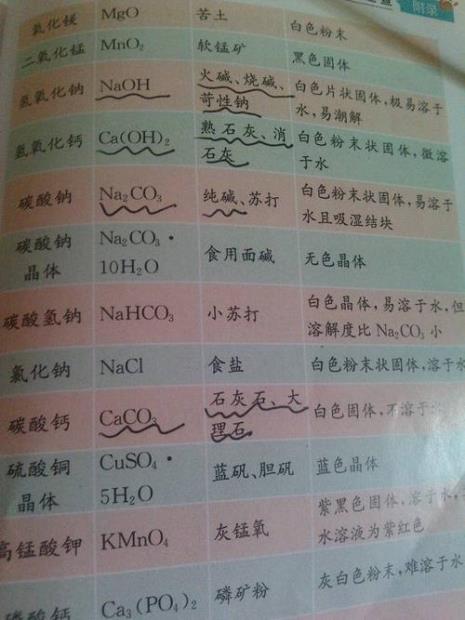 附录
氧化镁 MgO 苦土 白色粉末
二氧化锰 MnO₂ 软锰矿 黑色固体
氢氧化钠 NaOH 火碱、烧碱、 白色片状固体,极易溶于
苛性钠 水,易潮解
氢氧化钙 Ca(OH)₂ 熟石灰、消 白色粉末状固体,微溶
石灰 于水
碳酸钠 Na₂CO₃ 纯碱、苏打 白色粉末状固体,易溶于
水且吸湿结块
碳酸钠 Na₂CO₃·
晶体 10H₂O 食用面碱 无色晶体
碳酸氢钠 NaHCO₃ 小苏打 白色晶体,易溶于水,但
溶解度比Na₂CO₃小
氯化钠 NaCl 食盐 白色粉末状固体,溶于水
碳酸钙 CaCO₃ 石灰石、大 白色固体,不溶于
理石
硫酸铜 CuSO₄· 蓝矾、胆矾 蓝色晶体
晶体 5H₂O
高锰酸钾 KMnO₄ 灰锰氧 紫黑色固体,溶于水,
水溶液为紫红色
磷酸钙 Ca₃(PO₄)₂ 磷矿粉 灰白色粉末,难溶于水